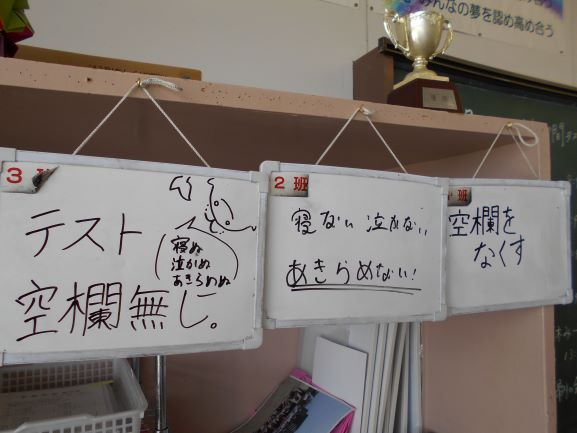 みんなの夢を認め高め合う
3
テスト
寝ぬ
泣かぬ
あきらめぬ
空欄無し。
2 班
寝ない 泣かない
あきらめない!
班
空欄を
なくす